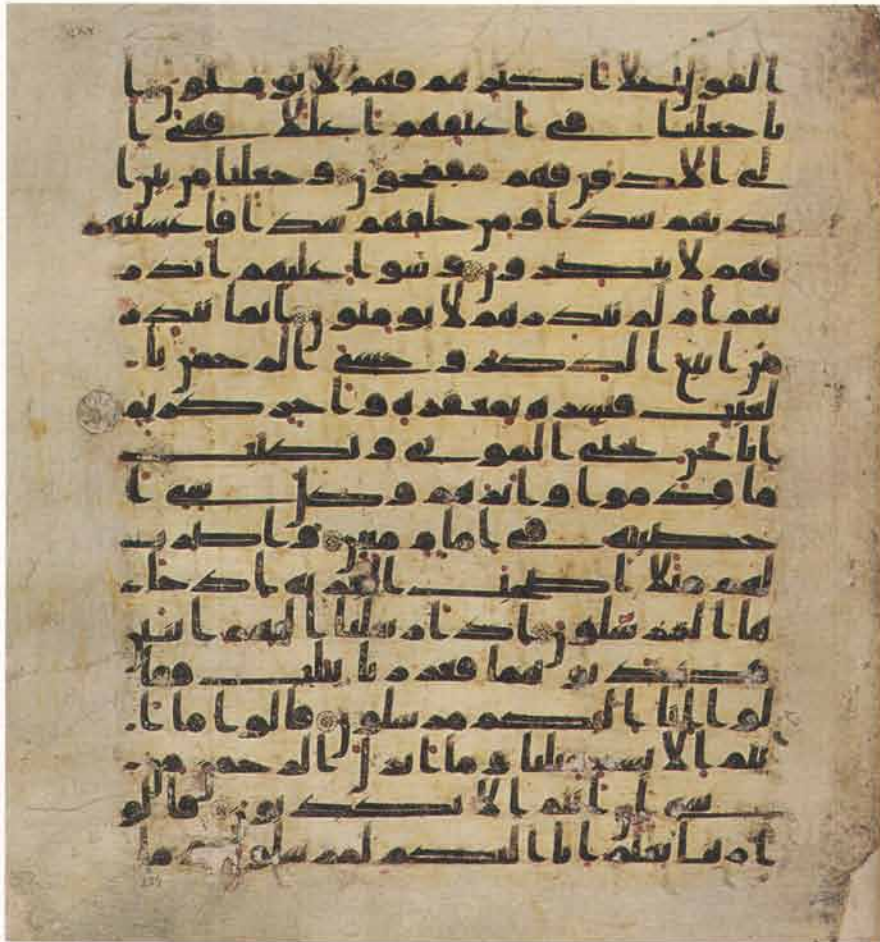 القول على اكثرهم فهم لا يومنون ا
نا جعلنا في اعنقهم اغللا فهي ا
لى الاذقن فهم مقمحون وجعلنا من بين ا
يديهم سدا ومن خلفهم سدا فاغشينهم
فهم لا يبصرون وسوا عليهم انذر
تهم ام لم تنذرهم لا يومنون انما تنذر
من اتبع الذكر وخشي الرحمن با
لغيب فبشره بمغفره واجر كريم
انا نحن نحي الموتى ونكتب
ما قدموا واثرهم وكل شي ا
حصينه في امام مبين واضرب
لهم مثلا اصحب القريه اذ جا
ها المرسلون اذ ارسلنا اليهم اثنين
فكذبوهما فعززنا بثلث فقا
لوا انا اليكم مرسلون قالوا ما ا
نتم الا بشر مثلنا وما انزل الرحمن من
شي ان انتم الا تكذبون قالو
ا ربنا يعلم انا اليكم لمرسلون وما